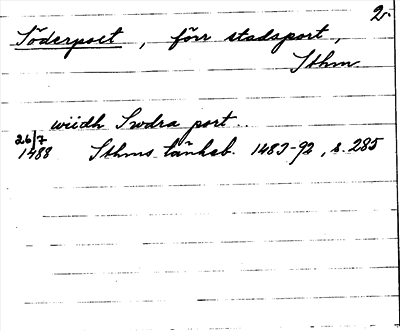 2.
Söderport, förr stadsport,
Sthm
wiidh Swdra port..
26/7
1488 Sthms tänkeb. 1483-92, s. 285